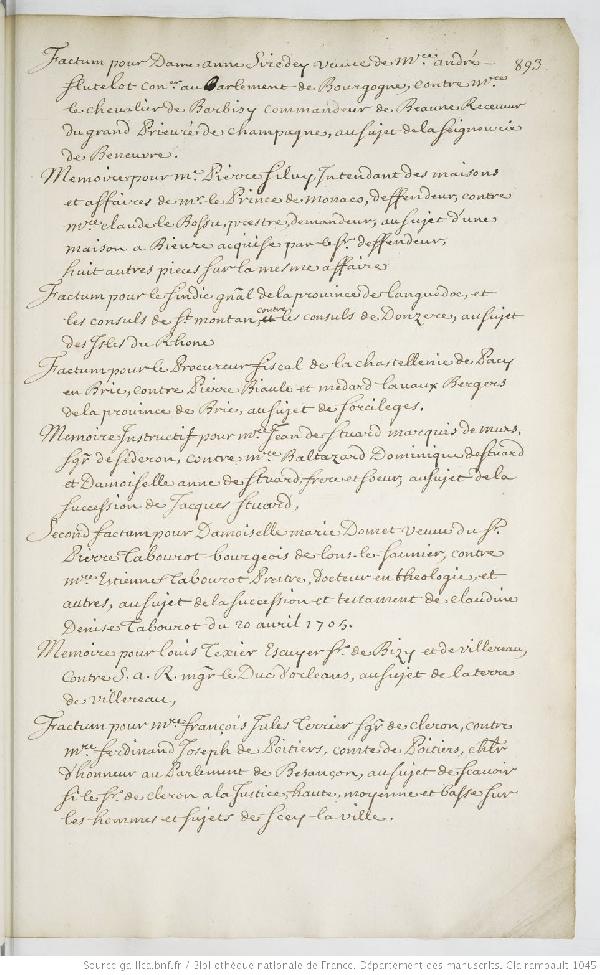 893
Factum pour Dame anne Siredey veuve de mre andré
flutelot coner au Parlement de Bourgogne, contre mre
le chevalier de Barbisy Commandeur de Beaune Receveur
du grand Prieuré de champagne, au sujet de la seigneurie
de Beneuvre.
Memoire pour mr Pierre Silvy Intendant des maisons
et affaires de mr le Prince de monaco, deffendeur, contre
mre claude le Bossu, prestre, demandeur, au sujet d'une
maison a Bievre acquise par le Sr deffendeur,
huit autres pieces sur la mesme affaire
Factum pour le sindic gnal de la province de languedoc, et
les consuls de St montan, contre les consuls de Donzere, au sujet
des Isles du Rhone
Factum pour le Procureur fiscal de la chastellenie de Pacy
en Brie, contre Pierre Biaule et medard lavaux Bergers
de la province de Brie, au sujet de sorcileges.
Memoire Instructif pour mre Jean de Stuard marquis de murs,
sgr de sederon, contre mre Baltazard Dominique de Stuard
et Damoiselle anne de Stuard, frere et soeur, au sujet de la
succession de Jacques Stuard,
Second factum pour Damoiselle marie Domet veuve du Sr
Pierre Tabourot bourgeois de lons-le-saunier, contre
mre Estienne Tabourot Prestre, docteur en theologie, et
autres, au sujet de la succession et testament de claudine
Denise Tabourot du 20 avril 1705.
Memoire pour louis Texier Escuyer Sr de Bizy et de villereau,
contre S. a. R. mgr le Duc d'orleans, au sujet de la terre
de villereau,
Factum pour mre françois Jules Terrier sgr de cleron, contre
mre ferdinand Joseph de Poitiers, comte de Poitiers, chlr
d'honneur au Parlement de Besançon, au sujet de scavoir
si le Sr de cleron a la Justice, haute, moyenne et basse sur
les hommes et sujets de scey-la ville.
Source gallica.bnf.fr / Bibliothèque nationale de France. Département des manuscrits. Clairambault 1045